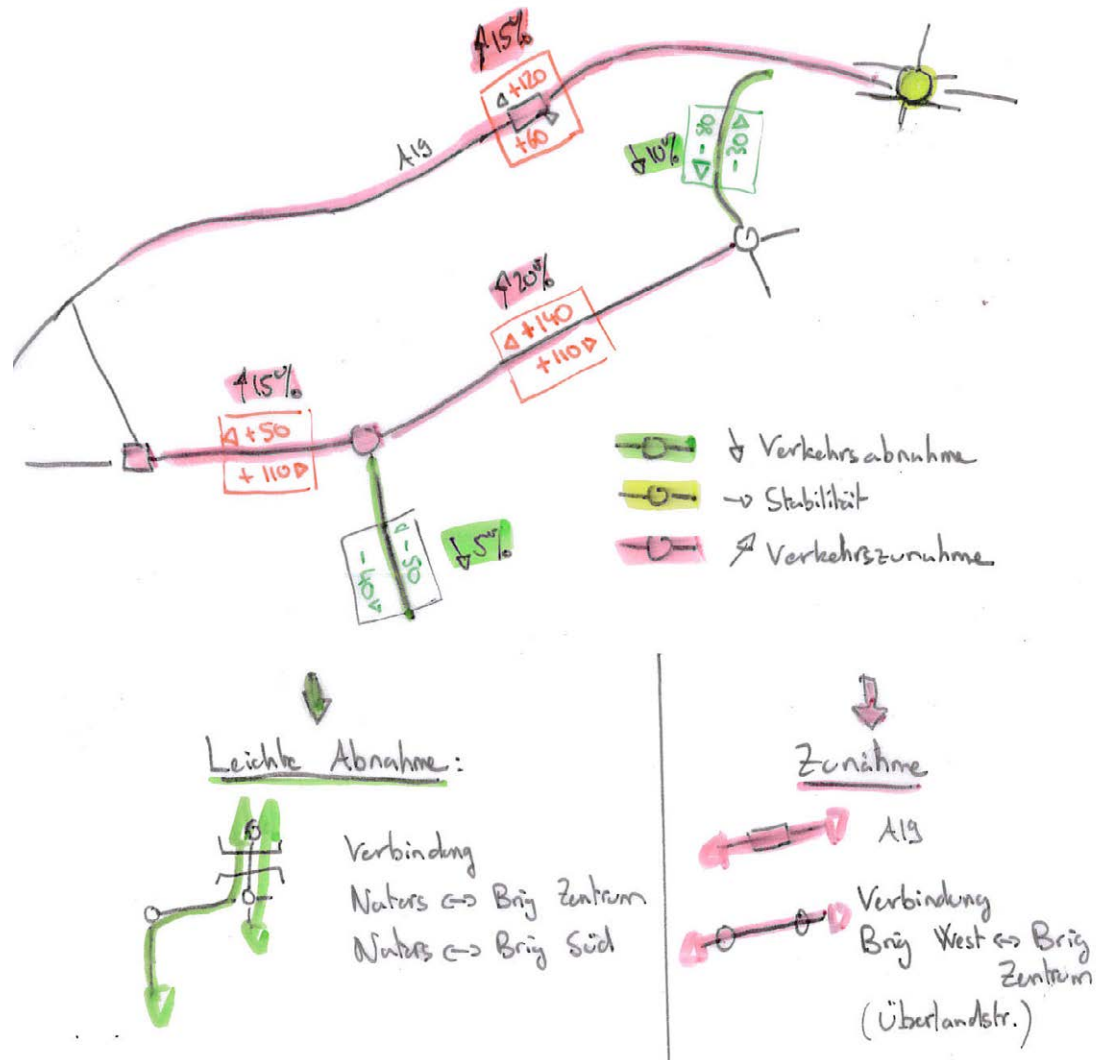 ↑15%
◁+120
+60▷
A19
↓10%
◁-80
-30▷
↑20%
◁+140
+110▷
↑15%
◁+50
+110▷
◁-50
-40▷
↓5%
↓ Verkehrsabnahme
→ Stabilität
↗ Verkehrszunahme
Leichte Abnahme:
Verbindung
Naters ↔ Brig Zentrum
Naters ↔ Brig Süd
Zunahme
A19
Verbindung
Brig West ↔ Brig
Zentrum
(Überlandstr.)